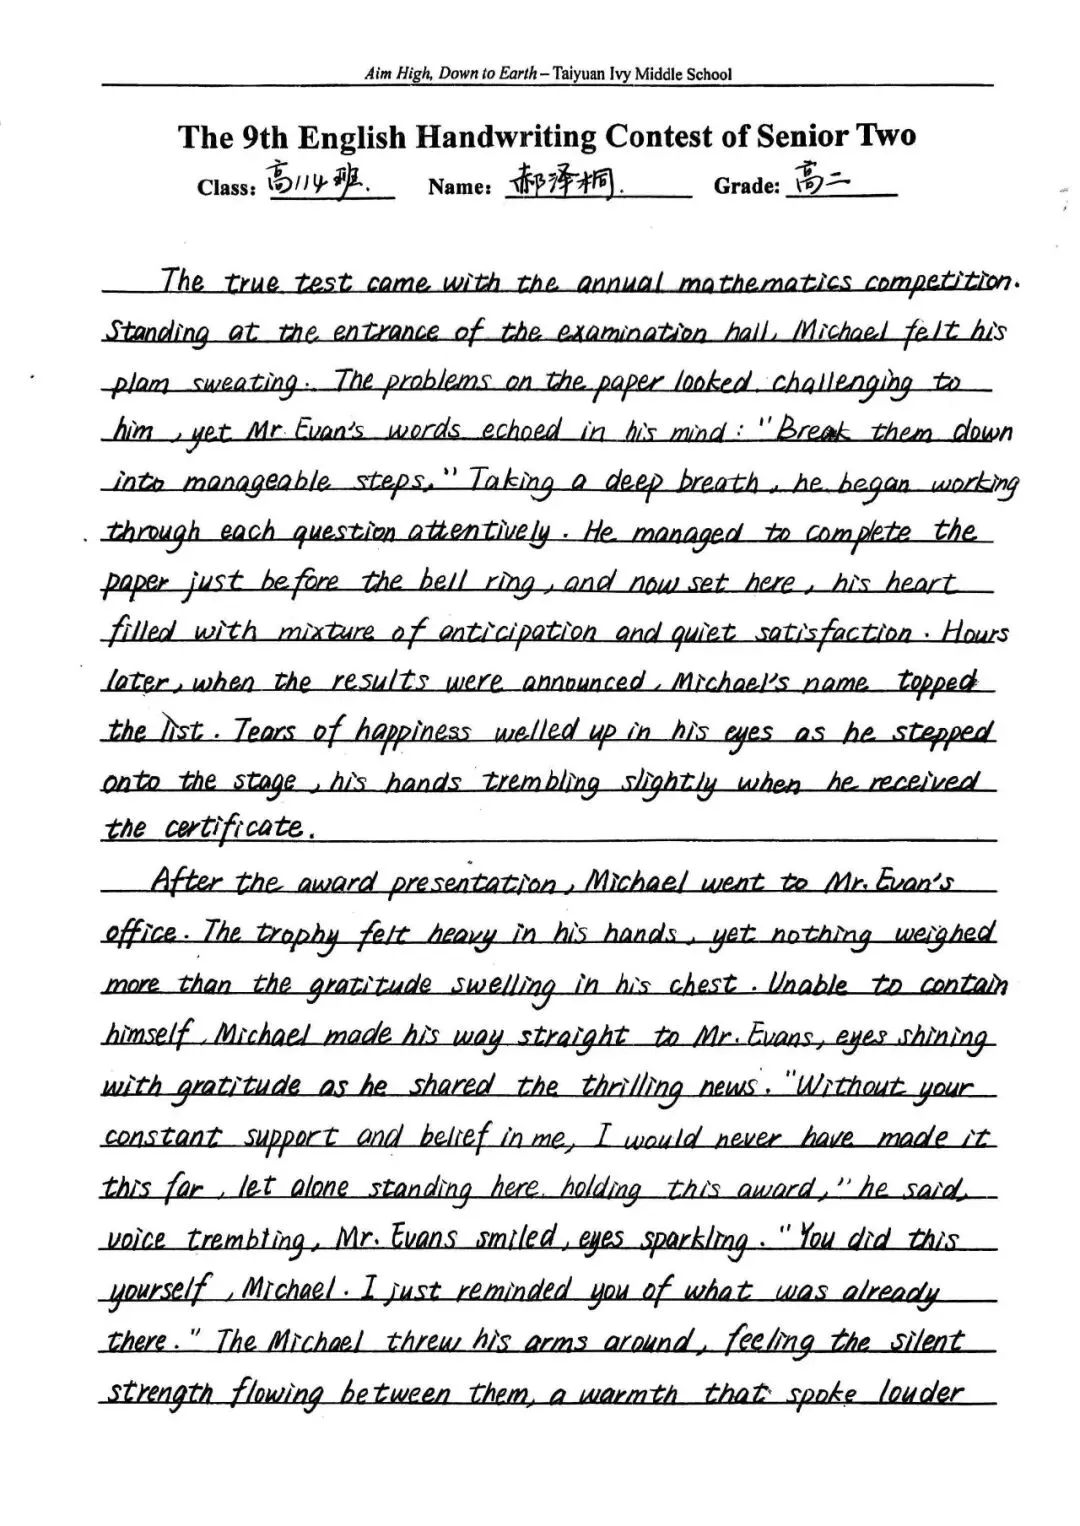 Aim High, Down to Earth – Taiyuan Ivy Middle School
The 9th English Handwriting Contest of Senior Two
Class: 高114班. Name: 郝泽桐. Grade: 高二
The true test came with the annual mathematics competition.
Standing at the entrance of the examination hall, Michael felt his
plam sweating. The problems on the paper looked challenging to
him, yet Mr. Evan's words echoed in his mind: "Break them down
into manageable steps." Taking a deep breath, he began working
through each question attentively. He managed to complete the
paper just before the bell ring, and now set here, his heart
filled with mixture of anticipation and quiet satisfaction. Hours
later, when the results were announced, Michael's name topped
the list. Tears of happiness welled up in his eyes as he stepped
onto the stage, his hands trembling slightly when he received
the certificate.
After the award presentation, Michael went to Mr. Evan's
office. The trophy felt heavy in his hands, yet nothing weighed
more than the gratitude swelling in his chest. Unable to contain
himself, Michael made his way straight to Mr. Evans, eyes shining
with gratitude as he shared the thrilling news. "Without your
constant support and belief in me, I would never have made it
this far, let alone standing here holding this award," he said,
voice trembting, Mr. Evans smiled, eyes sparkling. "You did this
yourself, Michael. I just reminded you of what was already
there." The Michael threw his arms around, feeling the silent
strength flowing between them, a warmth that spoke louder